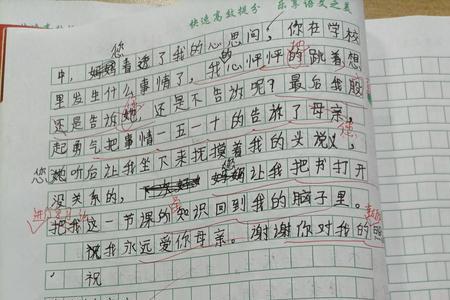 快速高效提分 乐享语文之美
您
中，妈妈看透了我的心思问：你在学校
里发生什么事情了，我的心怦怦的跳着想
还是告诉她，还是不告诉呢？最后我
起勇气把事情一五一十的告放了母亲，
您她听后让我坐下来抚摸着我的头说，
没关系的，妈妈让我把书打开
把我这一节课的知识回到我的脑子里。
祝我永远爱你母亲。谢谢你对我的
祝